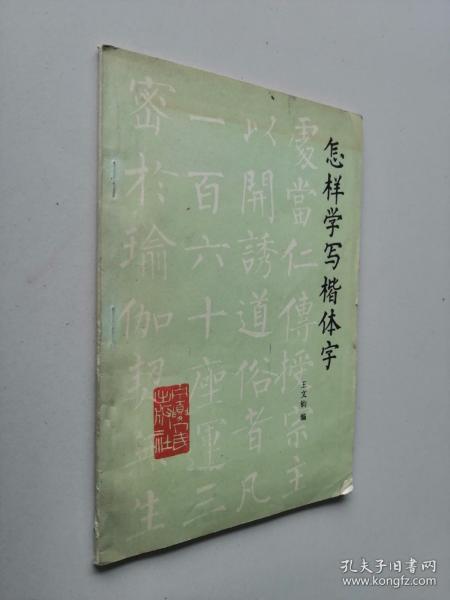 怎样学写楷体字
王文钧 编
處當仁傳授宗主
以開誘道俗者凡
一百六十座運三
密於瑜伽契無生
宁夏人民
出版社
孔夫子旧书网
www.kongfz.com